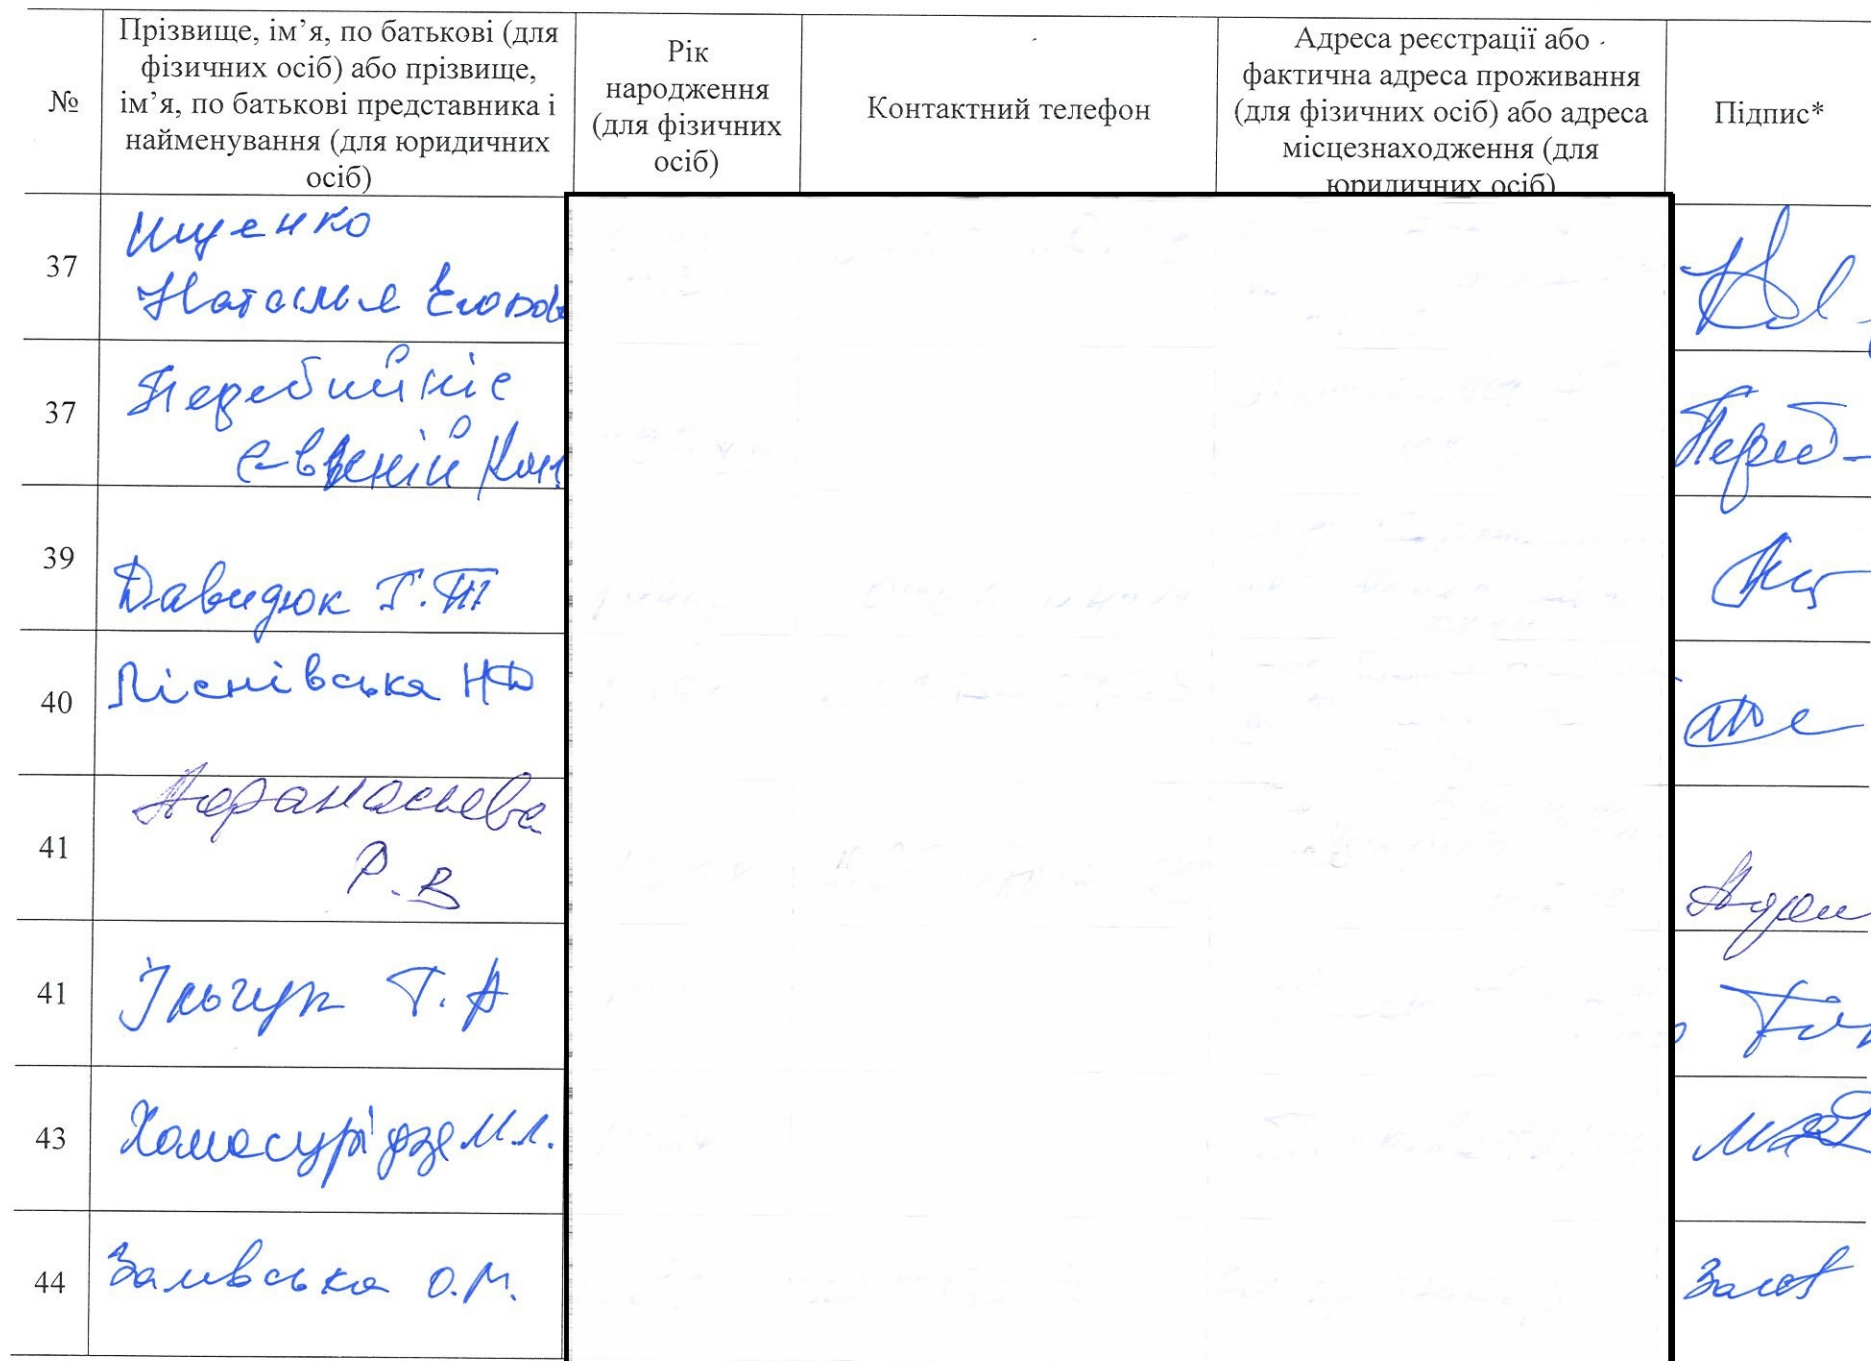 №
Прізвище, ім’я, по батькові (для
фізичних осіб) або прізвище,
ім’я, по батькові представника і
найменування (для юридичних
осіб)
Рік
народження
(для фізичних
осіб)
Контактний телефон
Адреса реєстрації або
фактична адреса проживання
(для фізичних осіб) або адреса
місцезнаходження (для
юридичних осіб)
Підпис*
37
Ищенко
Наталья
37
Перебийніс
Євгеній
39
Давидюк Г.П
40
Ліснівська НД
41
Афанасьева
Р.В
41
Ільчук Т.А
43
Хомасурідзе М.Л.
44
Залівська О.М.